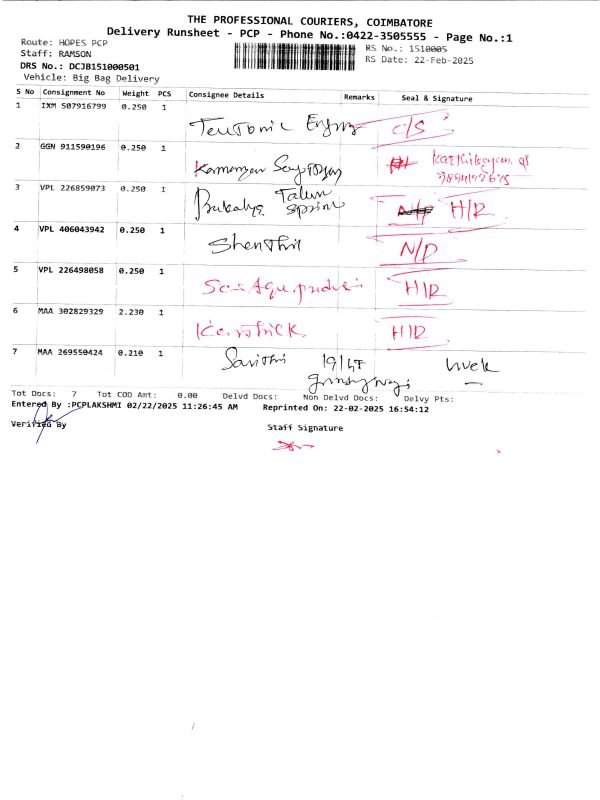 THE PROFESSIONAL COURIERS, COIMBATORE
Delivery Runsheet - PCP - Phone No.:0422-3505555 - Page No.:1
Route: HOPES PCP RS No.: 1510005
Staff: RAMSON RS Date: 22-Feb-2025
DRS No.: DCJB151000501
Vehicle: Big Bag Delivery
S No Consignment No Weight PCS Consignee Details Remarks Seal & Signature
1 IXM 507916799 0.250 1 Teutonic C/S
2 GGN 911590196 0.250 1
3 VPL 226859073 0.250 1 H/R
4 VPL 406043942 0.250 1 Shenthil N/P
5 VPL 226498058 0.250 1 H/R
6 MAA 302829329 2.230 1 H/R
7 MAA 269550424 0.210 1 Savithi
Tot Docs: 7 Tot COD Amt: 0.00 Delvd Docs: Non Delvd Docs: Delvy Pts:
Entered By :PCPLAKSHMI 02/22/2025 11:26:45 AM Reprinted On: 22-02-2025 16:54:12
Verified By Staff Signature